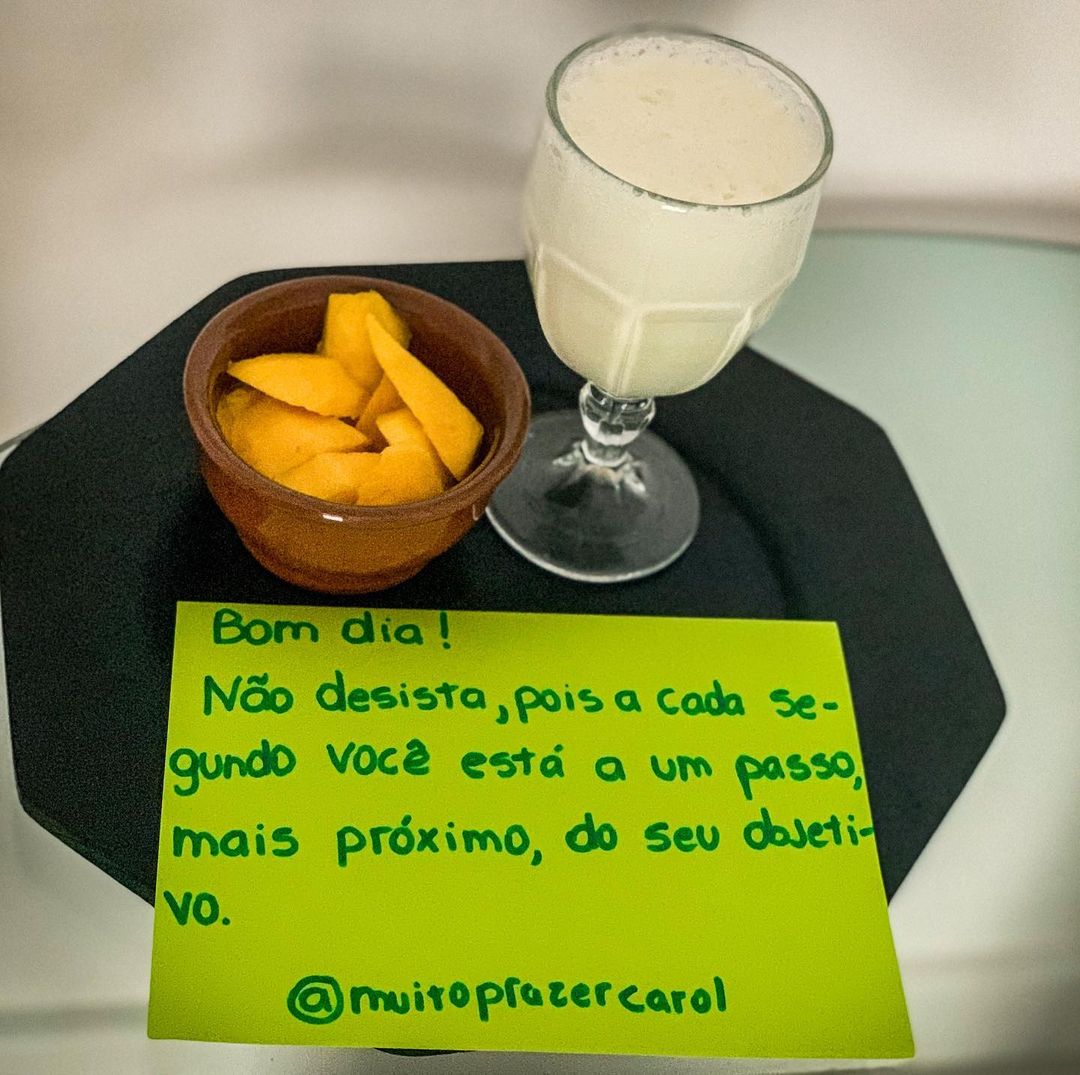 Bom dia!
Não desista, pois a cada se-
gundo você está a um passo,
mais próximo, do seu objeti-
vo.
@muitoprazercarol